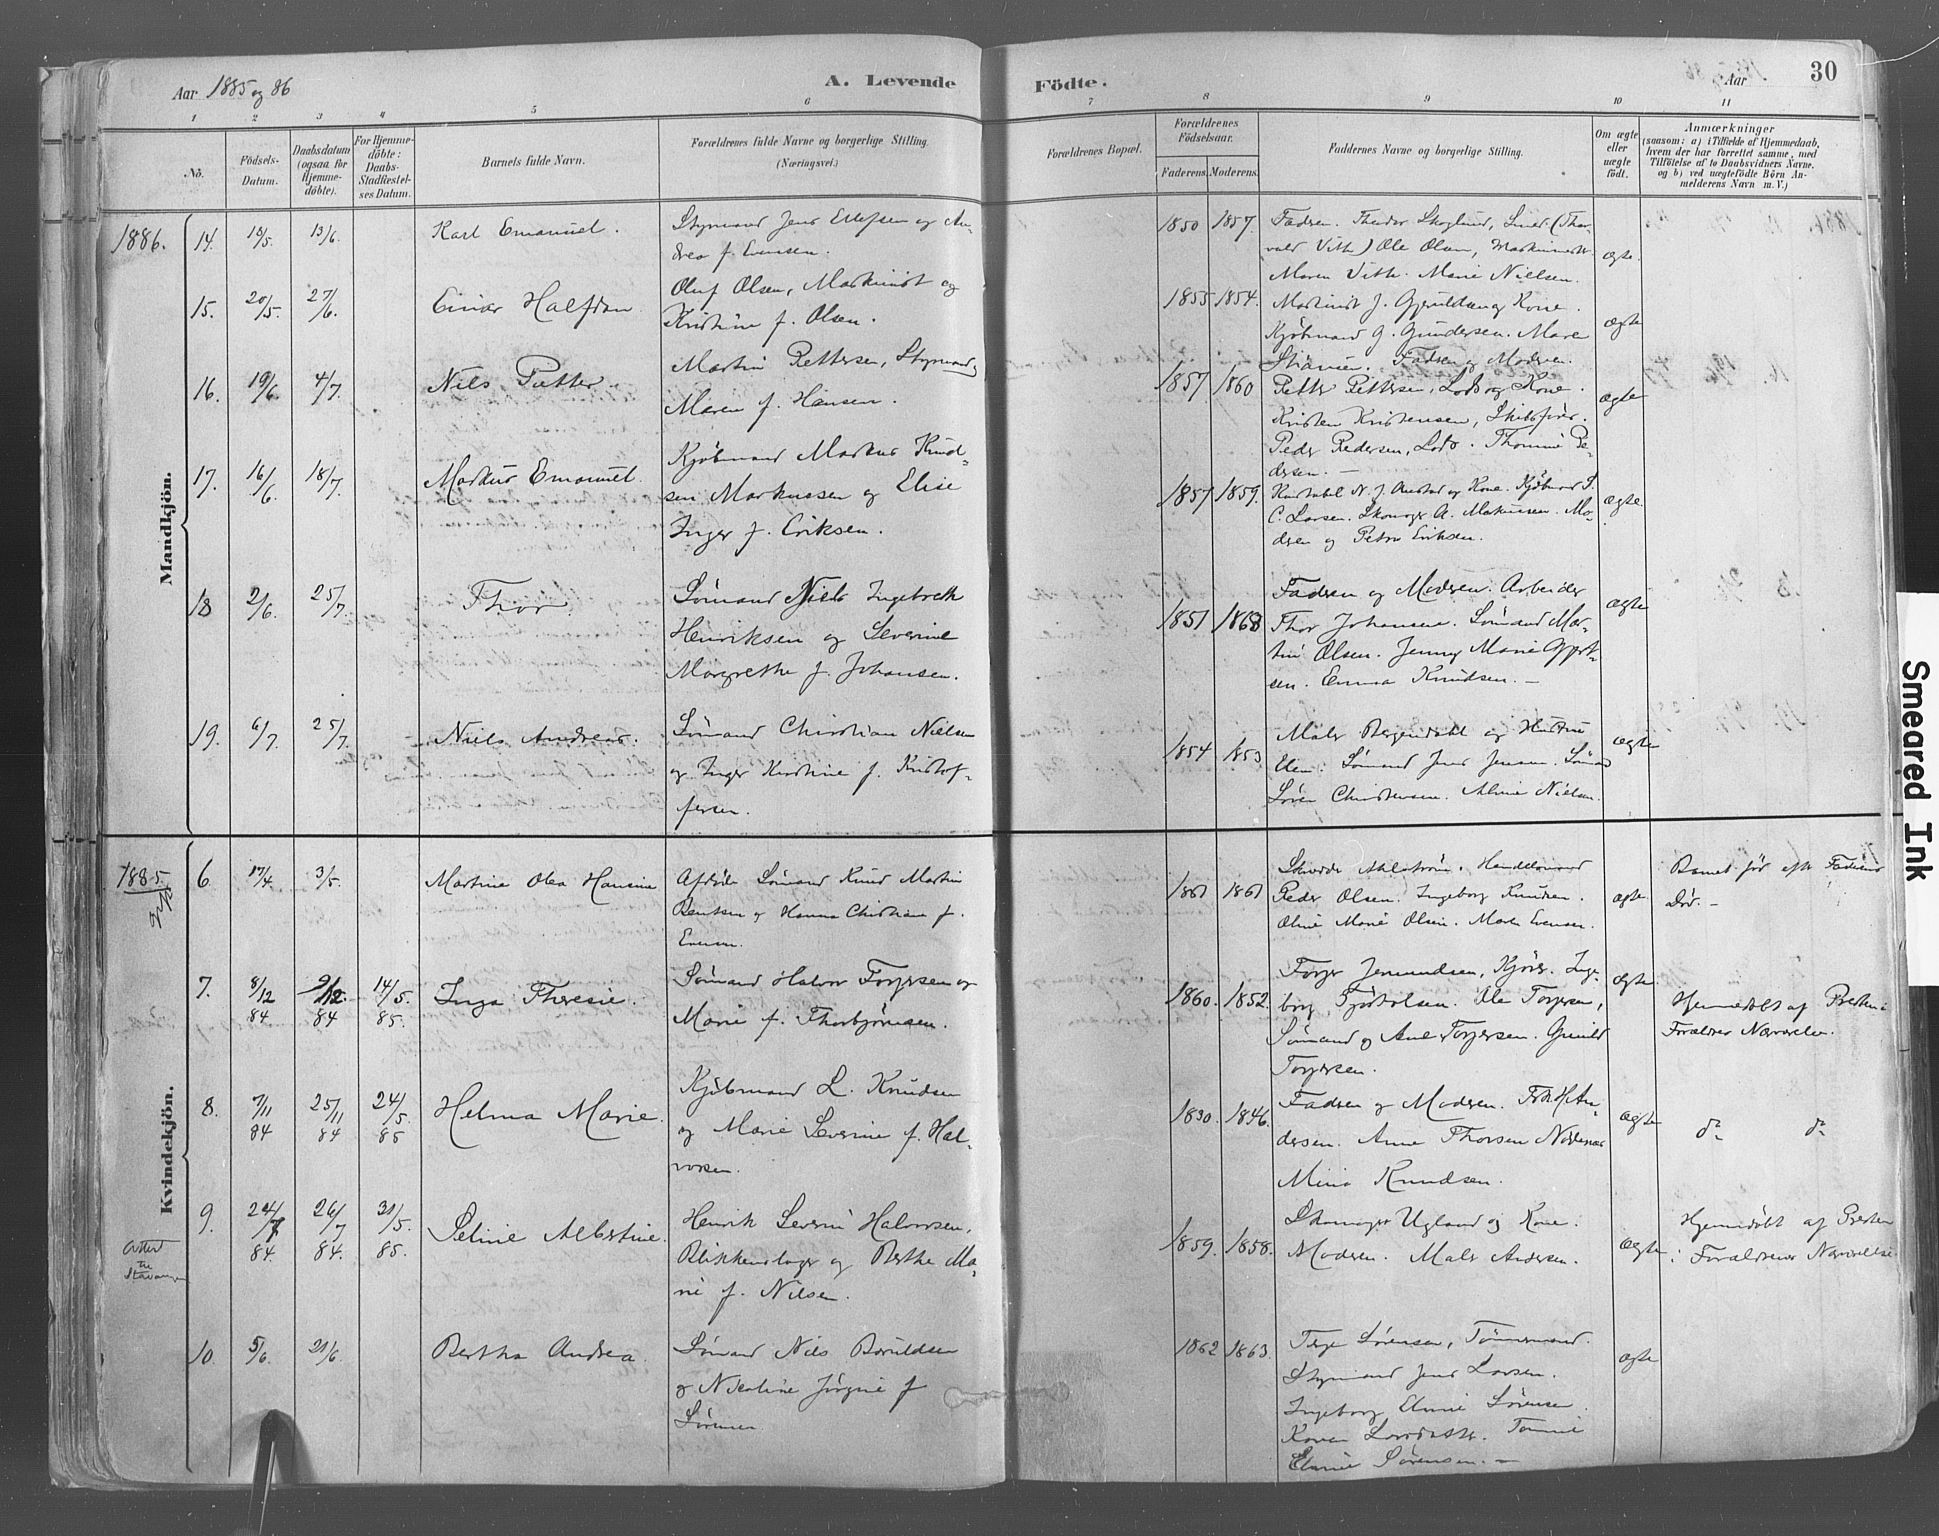 Aar 1885 og 86
A. Levende
Födte.
Aar
30
1 2 3 4 5 6 7 8 9 10 11
No.
Födsels-
Datum.
Daabsdatum
(ogsaa for
Hjemme-
döbte).
For Hjemme-
döbte:
Daabs-
Stadfæstel-
ses Datum.
Barnets fulde Navn.
Forældrenes fulde Navne og borgerlige Stilling.
(Næringsvei.)
Forældrenes Bopæl.
Forældrenes
Födselsaar.
Faderens. Moderens.
Faddernes Navne og borgerlige Stilling.
Om ægte
eller
uægte
födt.
Anmærkninger
(saasom: a) i Tilfælde af Hjemmedaab,
hvem der har forrettet samme, med
Tilföielse af to Daabsvidners Navne.
og b) ved uægtefödte Börn An-
melderens Navn m. V.)
Mandkjön.
1886.
14. 13/6. Karl Emanuel.
Styrmand Jens Ellefsen og An-
drea f. Evensen.
1850 1857.
Faderen. Theodor Skoglund, Smed (Thor-
vald Vith) Ole Olsen,
Maren Vith. Marie Nielsen.
ægte.
15. 20/5. 27/6. Einar Halfdan
Oluf Olsen, Maskinist og
Kristine f. Olsen.
1855 1854.
Maskinist J. og Kone.
Kjøbmand G. Gundersen. Maren
Faderen og Moderen.
ægte
16. 19/6. 4/7. Nils Petter.
Martin Pettersen, Styrmand,
Maren f. Hansen.
1857 1860
Petter Pettersen, Lods og Kone.
Kristen Kristensen, Skibsfører.
Peder Pedersen, Lods. Thomine Pe-
dersen. —
ægte
17. 16/6. 18/7. Markus Emanuel.
Kjøbmand Markus Knud-
sen Markussen og Elise
Inger f. Eriksen.
1857 1859.
N. J. og Kone. Kjøbmand S.
C. Larsen. Skomager A. Markussen. Mo-
deren og Petra Eriksen.
ægte.
18 2/6. 25/7. Thor.
Sømand Niels Ingebreth
Henriksen og Severine
Margrethe f. Johansen.
1851 1868
Faderen og Moderen. Arbeider
Thor Johansen. Sømand Mar-
tin Olsen. Jenny Marie
Emma Knudsen. —
ægte
19. 6/7. 25/7. Niels Andreas.
Sømand Christian Nielsen
og Inger Kirstine f. Kristof-
fersen.
1854 1853
Maler Bergendahl og Hustru
Elen. Sømand Jens Jensen. Sømand
Søren Christensen. Aline Nielsen.
ægte
Kvindekjön.
1885.
6. 17/4. 3/5. Martine Olea Hansine
Afdøde Sømand Knud Martin
Bentsen og Hanna Christiane f.
Evensen.
1861 1861
Skræder Ahlstrøm. Handelsmand
Peder Olsen. Ingeborg Knudsen.
Oline Marie Olsen. Maren Evensen.
ægte.
Barnet før eft. Faderens
Død. —
7. 8/12 84 9/12. 84 14/5. 85. Inga Theresie.
Sømand Halvor Torjersen og
Marie f. Thorbjørnsen.
1860. 1852.
Torjer Jermundsen, Kjørs. Inge-
borg Ole Torjersen,
Sømand og Ane Torjersen. Gunild
Torjersen.
ægte.
Hjemmedøbt af Presten i
Forældres Nærværelse.
8. 7/11 84 25/11 84 24/5. 85 Helma Marie.
Kjøbmand L. Knudsen
og Marie Severine f. Hal-
vorsen.
1830. 1846.
Faderen og Moderen. An-
dersen. Anne Thorsen
Mina Knudsen.
ægte
do do
9. 24/7 84. 26/7 84. 31/5. 85. Seline Albertine.
Henrik Severin Halvorsen,
Blikkenslager og Berthe Ma-
rie f. Nilsen.
1859. 1858.
Skomager Ugland og Kone.
Moderen. Maler Andersen.
ægte
Hjemdøbt af Presten
i Forældrenes Nærværelse
Attest
til
Stavanger
10. 5/6. 21/6. Bertha Andrea.
Sømand Nils Boruldsen
og Nicoline Jørgine f
Sørensen
1862 1863.
Terje Sørensen, Tømmermand.
Styrmand Jens Larsen.
Ingeborg Elenie Sørensen.
Karen Tomine
Elenie Sørensen. —
ægte
Smeared Ink